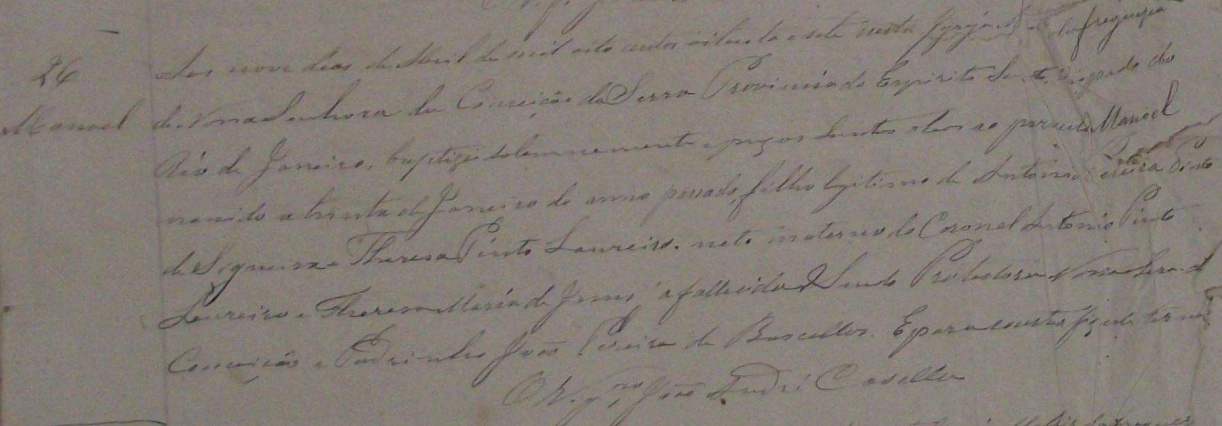 26
Manoel
Aos nove dias de Abril de mil oito centos oitenta e sete nesta Igreja da freguezia
de Nossa Senhora da Conceição da Serra Provincia do Espirito Santo Bispado do
Rio de Janeiro, baptizei solemnemente e puz os Santos oleos ao parvulo Manoel
nascido a trinta de Janeiro do anno passado, filho legitimo de Antonio Pereira Pinto
de Siqueira e Theresa Pinto Loureiro. neto materno do Coronel Antonio Pinto
Loureiro e Theresa Maria de Jesus, a fallecida Sendo Protectora Nossa Senra da
Conceição e Padrinho João Pereira de Bascellos. E para constar fiz este termo
O Vigro João André Casella